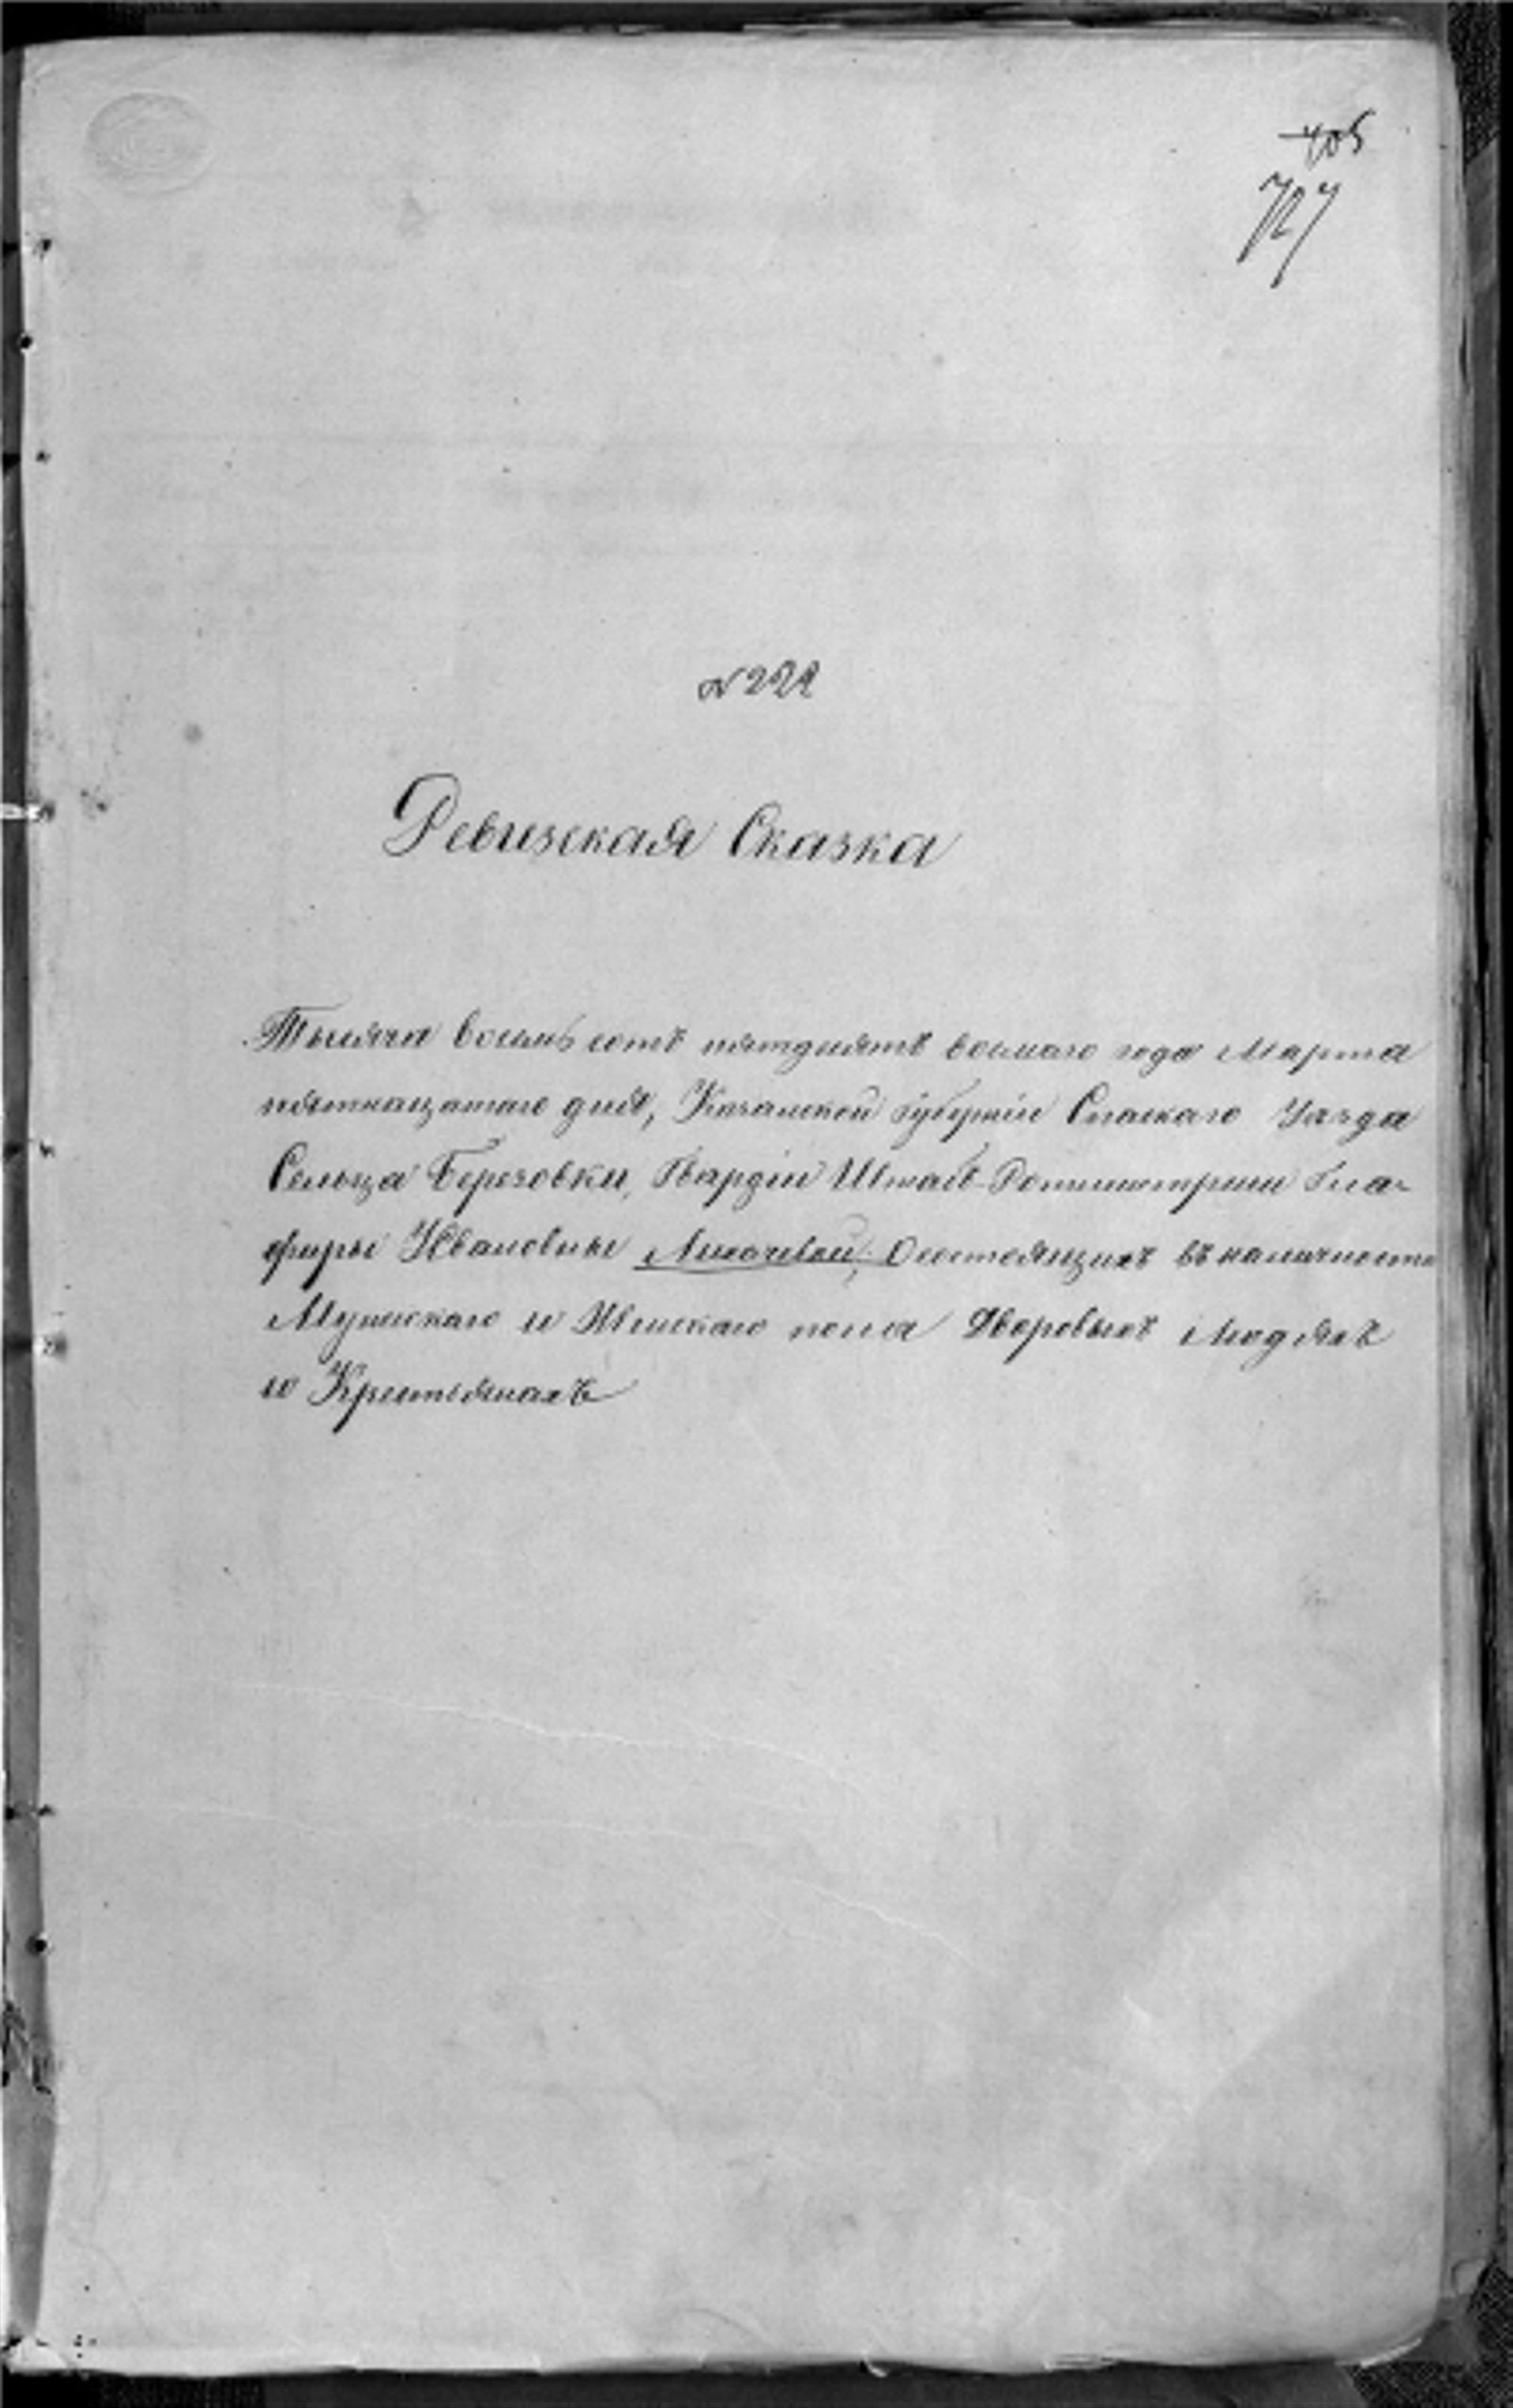 405
727
№ 221
Ревизская Сказка
Тысяча восемь сотъ пятдѣсятъ восьмаго года Марта
пятнацатаго дня, Казанской губерніи Спаскаго Уѣзда
Сельца Березовки, Гвардіи Штабъ-Ротмистрши Гла-
фиры Ивановны Лихачевой, О состоящихъ въ наличности
Мужескаго и Женскаго пола Дворовыхъ людяхъ
и Крестьянахъ